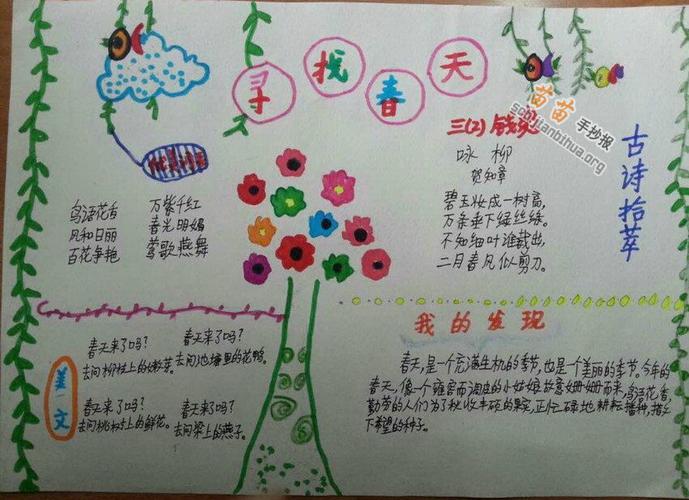 寻找春天
三(2) 钱
苗苗
手抄报
古诗拾萃
咏 柳
贺知章
碧玉妆成一树高,
万条垂下绿丝绦。
不知细叶谁裁出,
二月春风似剪刀。
鸟语花香 万紫千红
风和日丽 春光明媚
百花争艳 莺歌燕舞
美文
春天来了吗? 春天来了吗?
去问柳树上的嫩芽。 去问池塘里的花鸭。
春天来了吗? 春天来了吗?
去问桃树上的鲜花。 去问梁上的燕子。
我的发现
春天,是一个充满生机的季节,也是一个美丽的季节。今年的
春天,像个雍容而淘皮的小姑娘故意姗姗而来,鸟语花香,
勤劳的人们为了秋收丰硕的果实,正忙碌地耕耘、播种,播
下希望的种子。